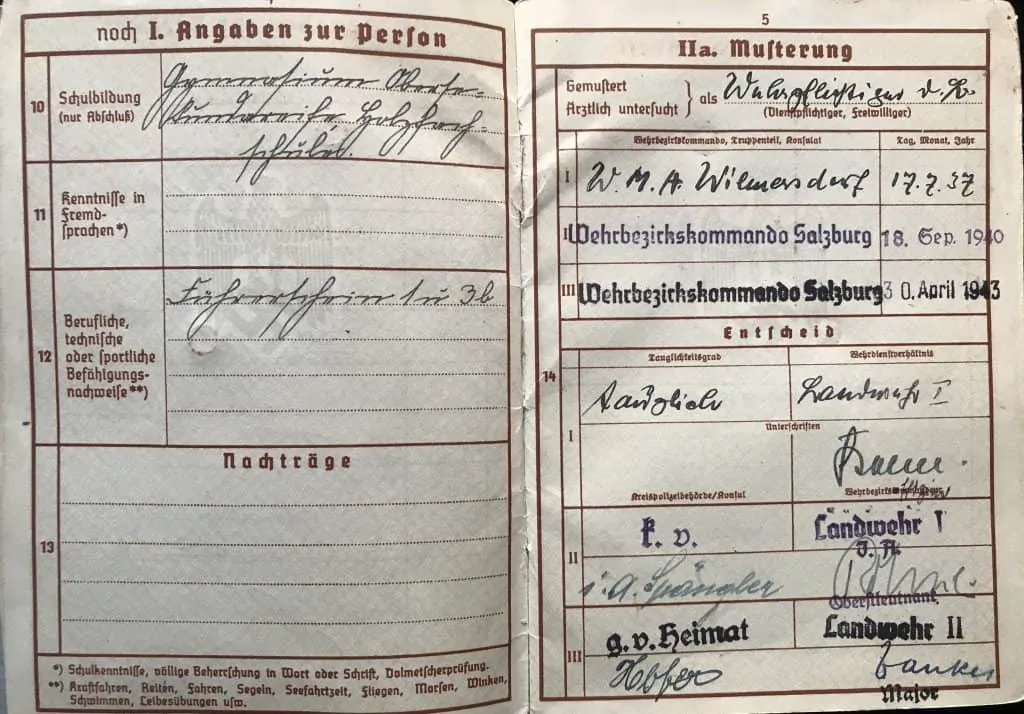 noch I. Angaben zur Person
10
Schulbildung
(nur Abschluß)
Gymnasium Oberse-
kundareife Holzfach-
schule.
11
Kenntnisse in
Fremd-
sprachen*)
12
Berufliche,
technische
oder sportliche
Befähigungs-
nachweise**)
Führerschein 1 u 3b
Nachträge
13
*) Schulkenntnisse, völlige Beherrschung in Wort oder Schrift, Dolmetscherprüfung.
**) Kraftfahren, Reiten, Fahren, Segeln, Seefahrtzeit, Fliegen, Morsen, Winken,
Schwimmen, Leibesübungen usw.
5
IIa. Musterung
Gemustert
Ärztlich untersucht } als Wehrpflichtiger d.
(Dienstpflichtiger, Freiwilliger)
Wehrbezirkskommando, Truppenteil, Konsulat
Tag, Monat, Jahr
I W. M. A. Wilmersdorf 17.7.37
II Wehrbezirkskommando Salzburg 18. Sep. 1940
III Wehrbezirkskommando Salzburg 30. April 1943
Entscheid
14
Tauglichkeitsgrad
Wehrdienstverhältnis
I
tauglich
Landwehr I
Unterschriften
Kreispolizeibehörde/Konsul
II
k. v.
Landwehr I
J. A.
i. A. Spängler
Oberstleutnant.
III
g. v. Heimat
Landwehr II
Major